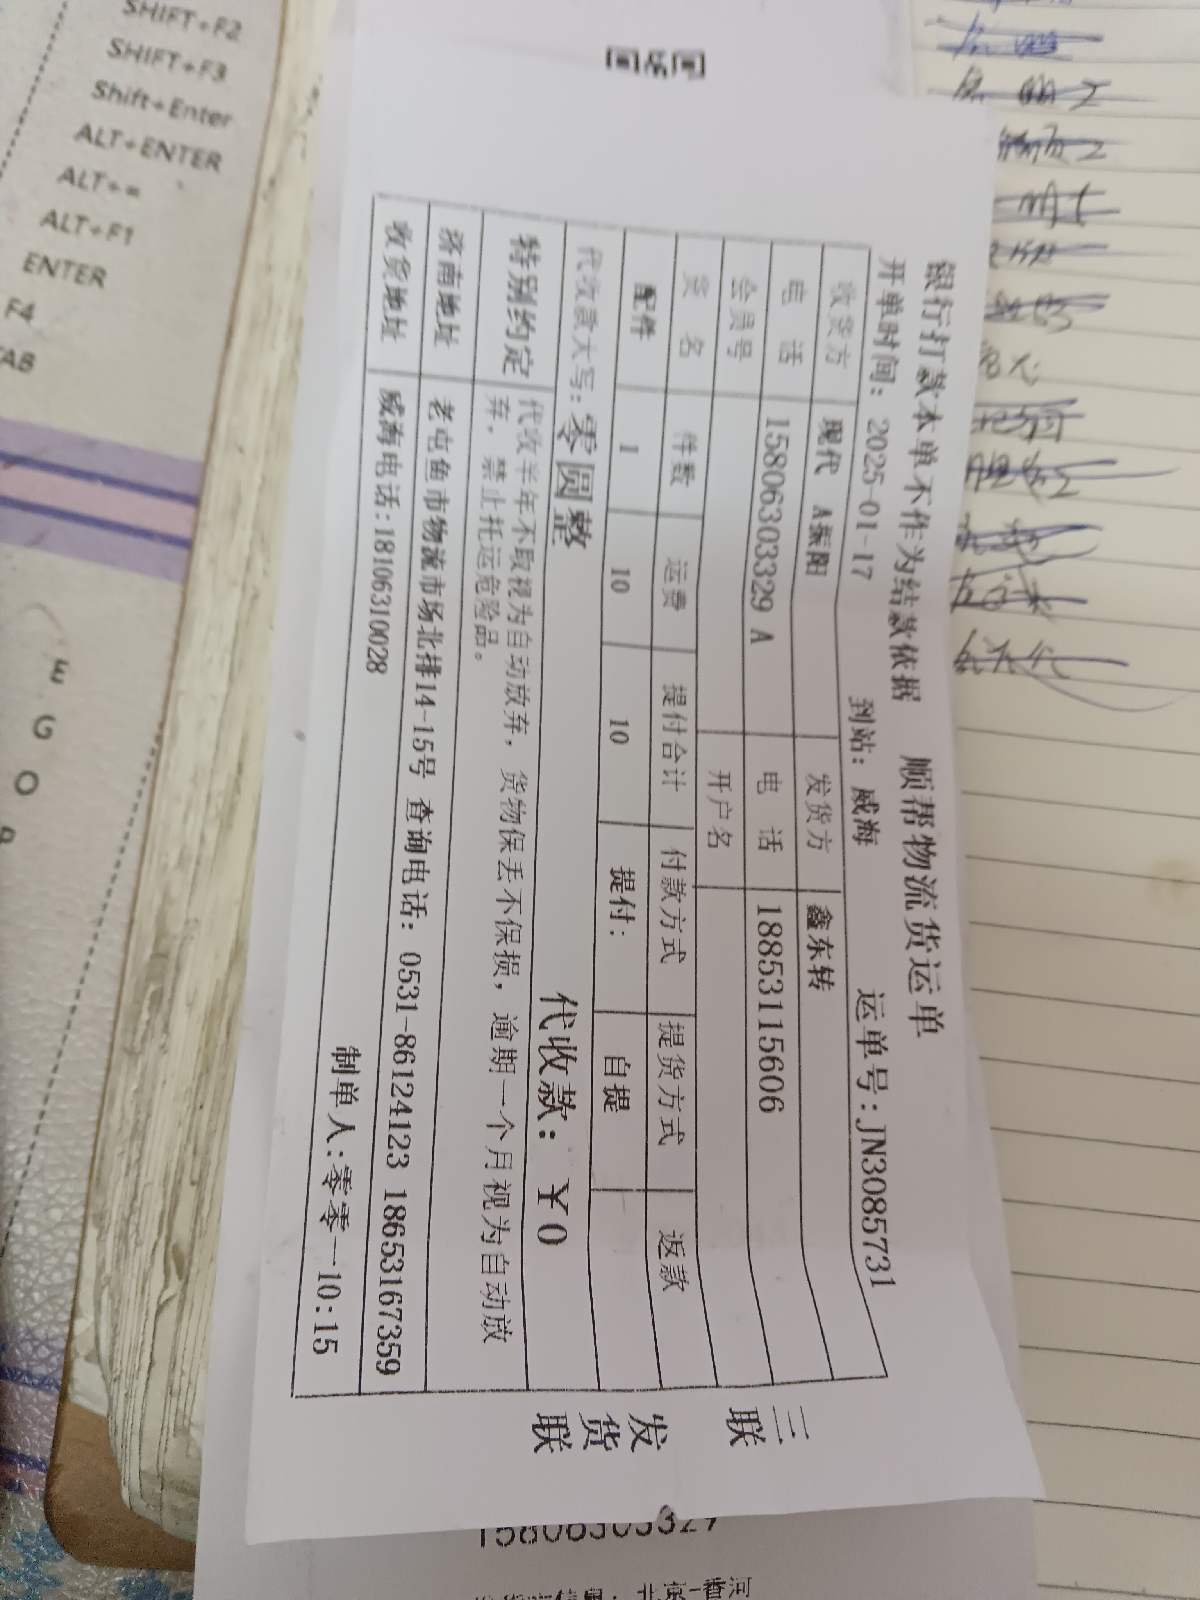 SHIFT+F2
SHIFT+F3
Shift+Enter
ALT+ENTER
ALT+=
ALT+F1
ENTER
F4
银行打款本单不作为结款依据 顺帮物流货运单
开单时间: 2025-01-17 到站: 威海 运单号:JN3085731
收货方 现代 A振阳 发货方 鑫东转
电 话 15806303329 A 电 话 18853115606
会员号 开户名
货 名 件数 运费 提付合计 付款方式 提货方式 返款
配件 1 10 10 提付: 自提
代收款大写: 零圆整 代收款: ￥0
特别约定 代收半年不取视为自动放弃, 货物保丢不保损, 逾期一个月视为自动放
弃, 禁止托运危险品。
济南地址 老屯鱼市物流市场北排14-15号 查询电话: 0531-86124123 18653167359
收货地址 威海电话:18106310028
制单人:零零一10:15
三联
发货联
15806303329
北京-香河